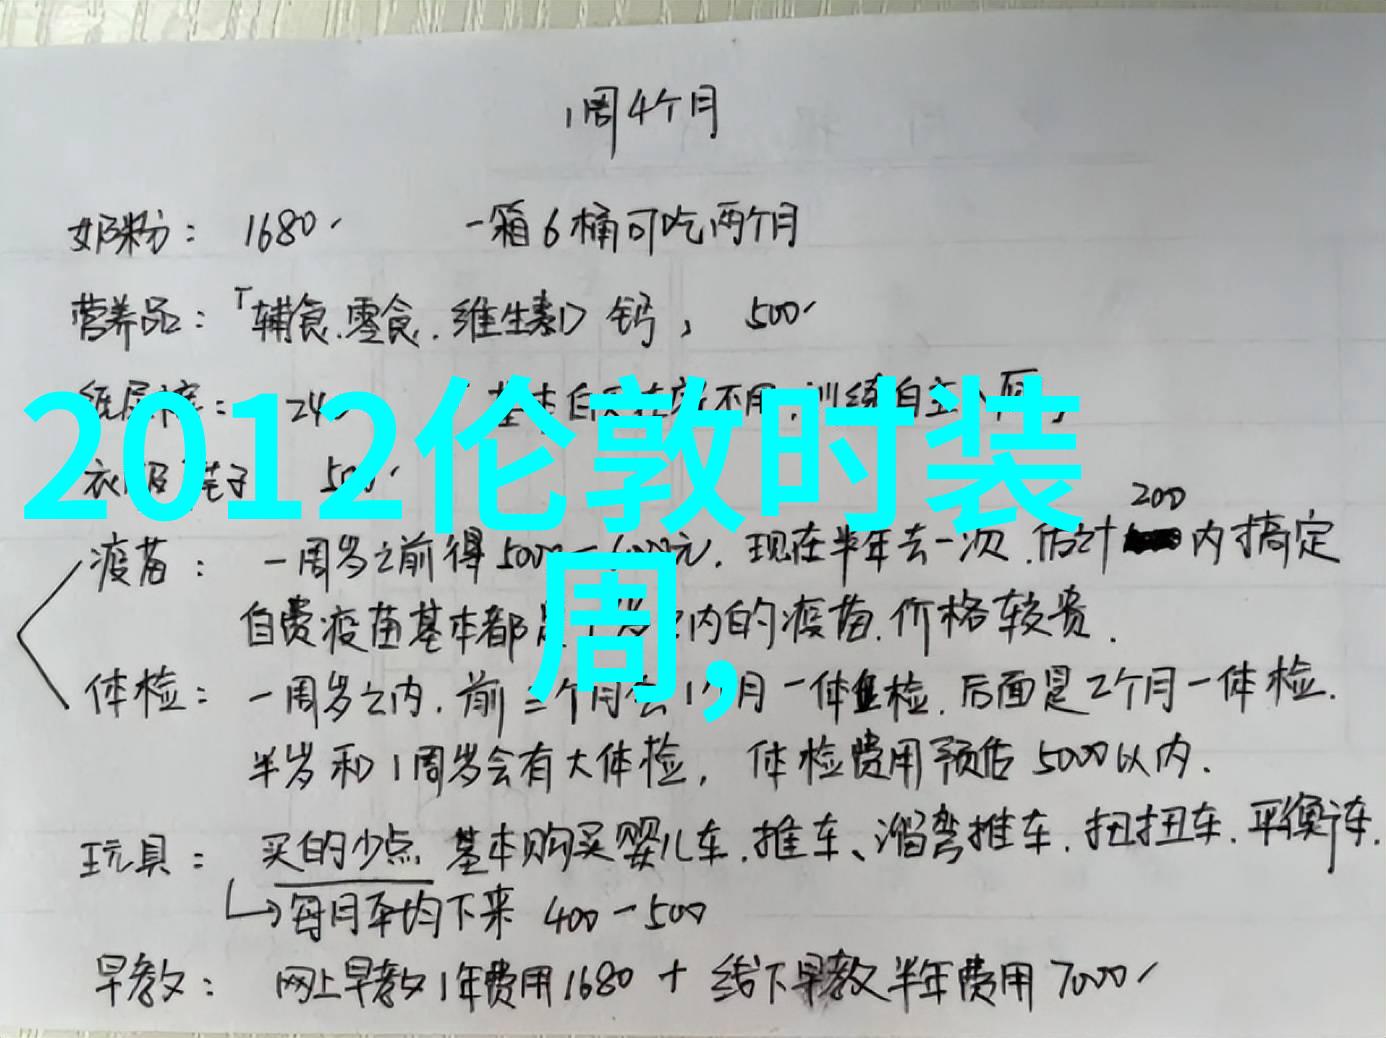 1周4个月
奶粉： 1680、 一箱6桶可吃两个月
营养品：「辅食.零食.维生素D 钙， 500、
纸尿裤： 24 基本白天 不用,训练自主
2012伦敦时装
衣服 裤子 500
200
疫苗： 一周岁之前得5000-6000元. 现在半年去一次.估计 内搞定
自费疫苗基本都是 内的疫苗.价格较贵.
周,
体检： 一周岁之内.前三个月去1个月一体检.后面是2个月一体检.
半岁和1周岁会有大体检， 体检费用预估5000以内.
玩具： 买的少点 基本购买婴儿车.推车、溜弯推车.扭扭车.平衡车.
每月平均下来 400-500
早教： 网上早教1年费用1680 + 线下早教半年费用7000、